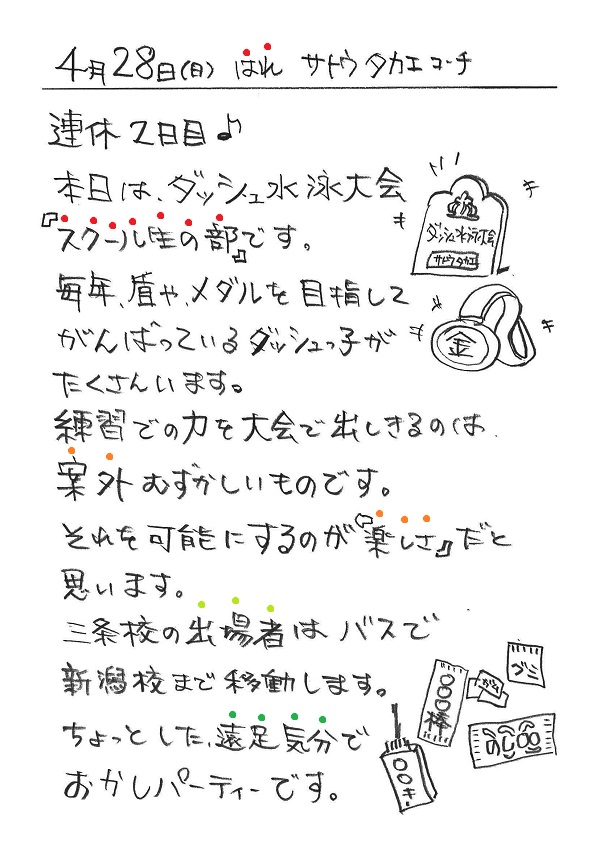 4月28日(日) はれ サトウタカエコーチ
連休2日目♪
本日は、ダッシュ水泳大会
『スクール生の部』です。
毎年、盾や、メダルを目指して
がんばっているダッシュっ子が
たくさんいます。
練習での力を大会で出しきるのは
案外むずかしいものです。
それを可能にするのが『楽しさ』だと
思います。
三条校の出場者はバスで
新潟校まで移動します。
ちょっとした、遠足気分で
おかしパーティーです。
ダッシュ水泳大会
サトウタカエ
金
〇〇〇棒
〇〇キー